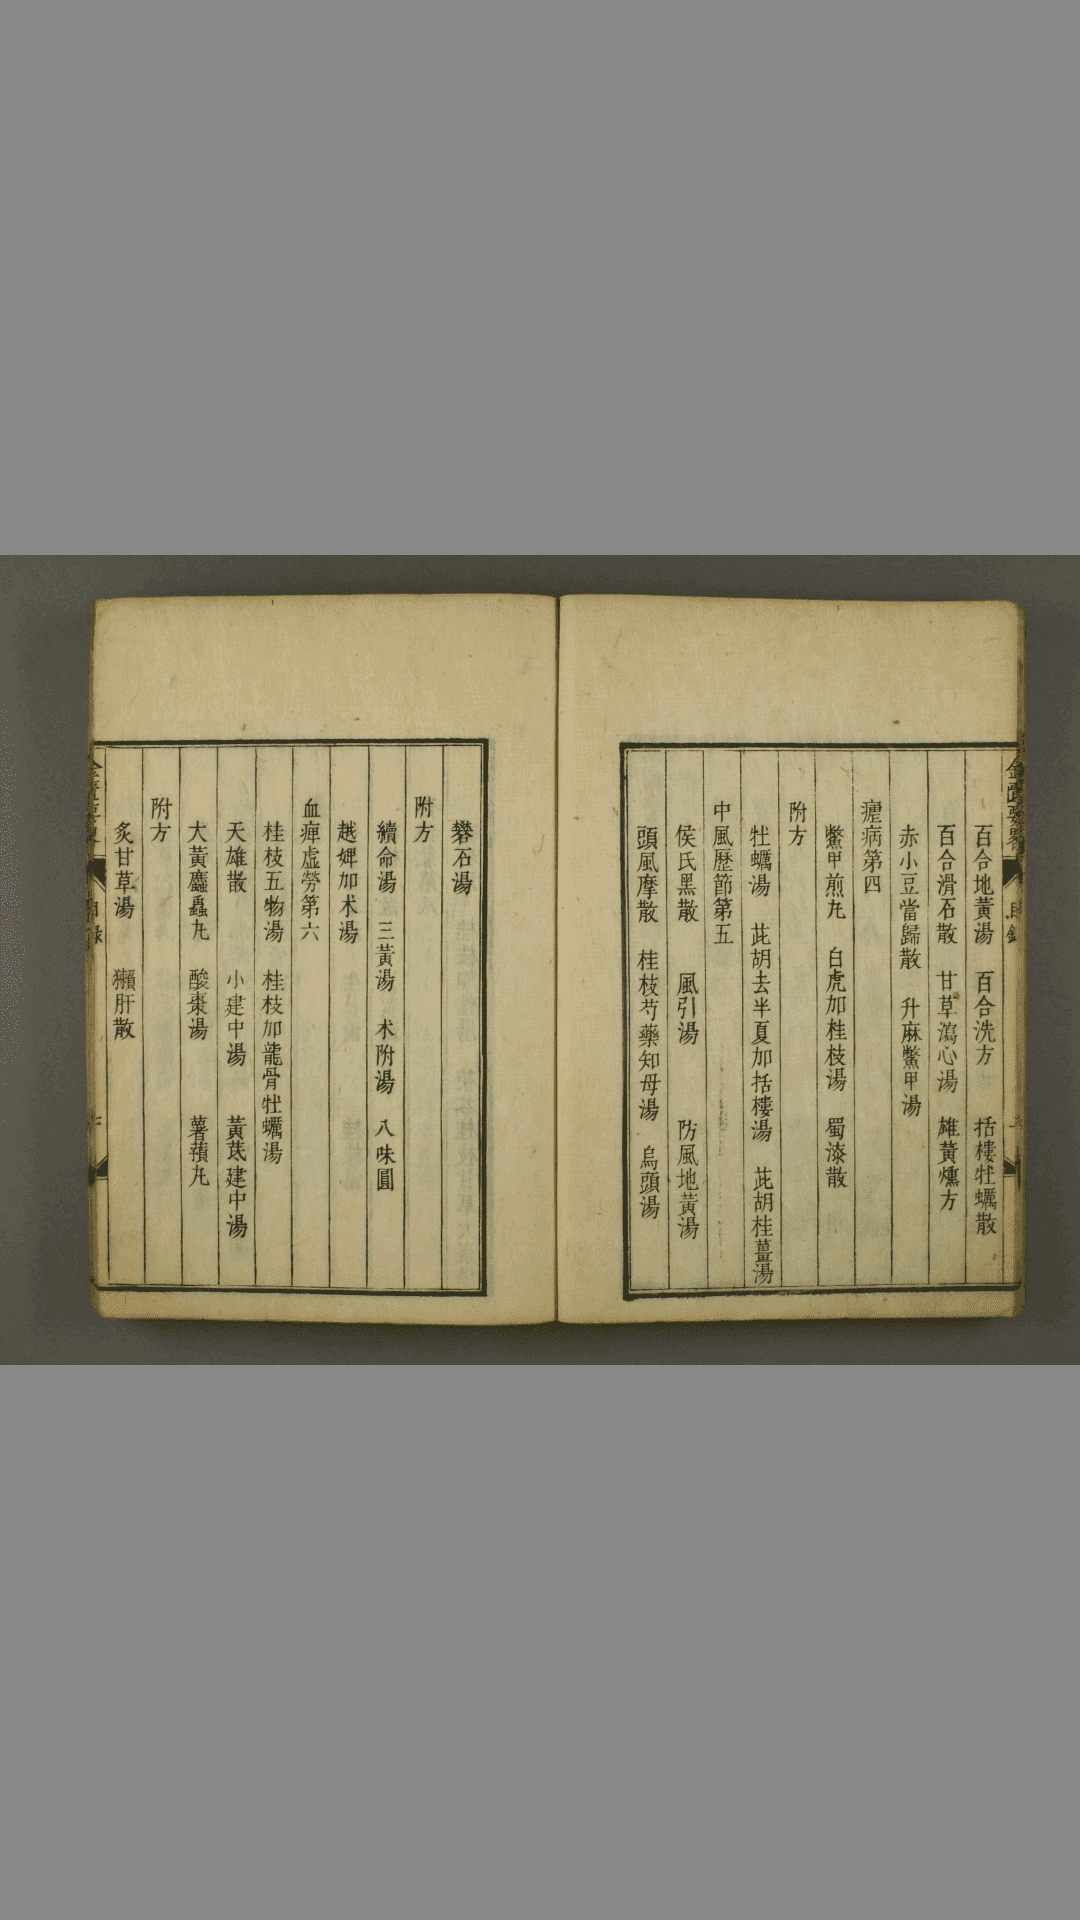 百合地黃湯 百合洗方 括樓牡蠣散
百合滑石散 甘草瀉心湯 雄黃燻方
赤小豆當歸散 升麻鱉甲湯
瘧病第四
鱉甲煎圥 白虎加桂枝湯 蜀漆散
附方
牡蠣湯 茈胡去半夏加括樓湯 茈胡桂薑湯
中風歷節第五
侯氏黑散 風引湯 防風地黃湯
頭風摩散 桂枝芍藥知母湯 烏頭湯
礬石湯
附方
續命湯 三黃湯 术附湯 八味圓
越婢加术湯
血痺虛勞第六
桂枝五物湯 桂枝加龍骨牡蠣湯
天雄散 小建中湯 黃茋建中湯
大黃䗪蟲圥 酸棗湯 薯蕷圥
附方
炙甘草湯 獺肝散